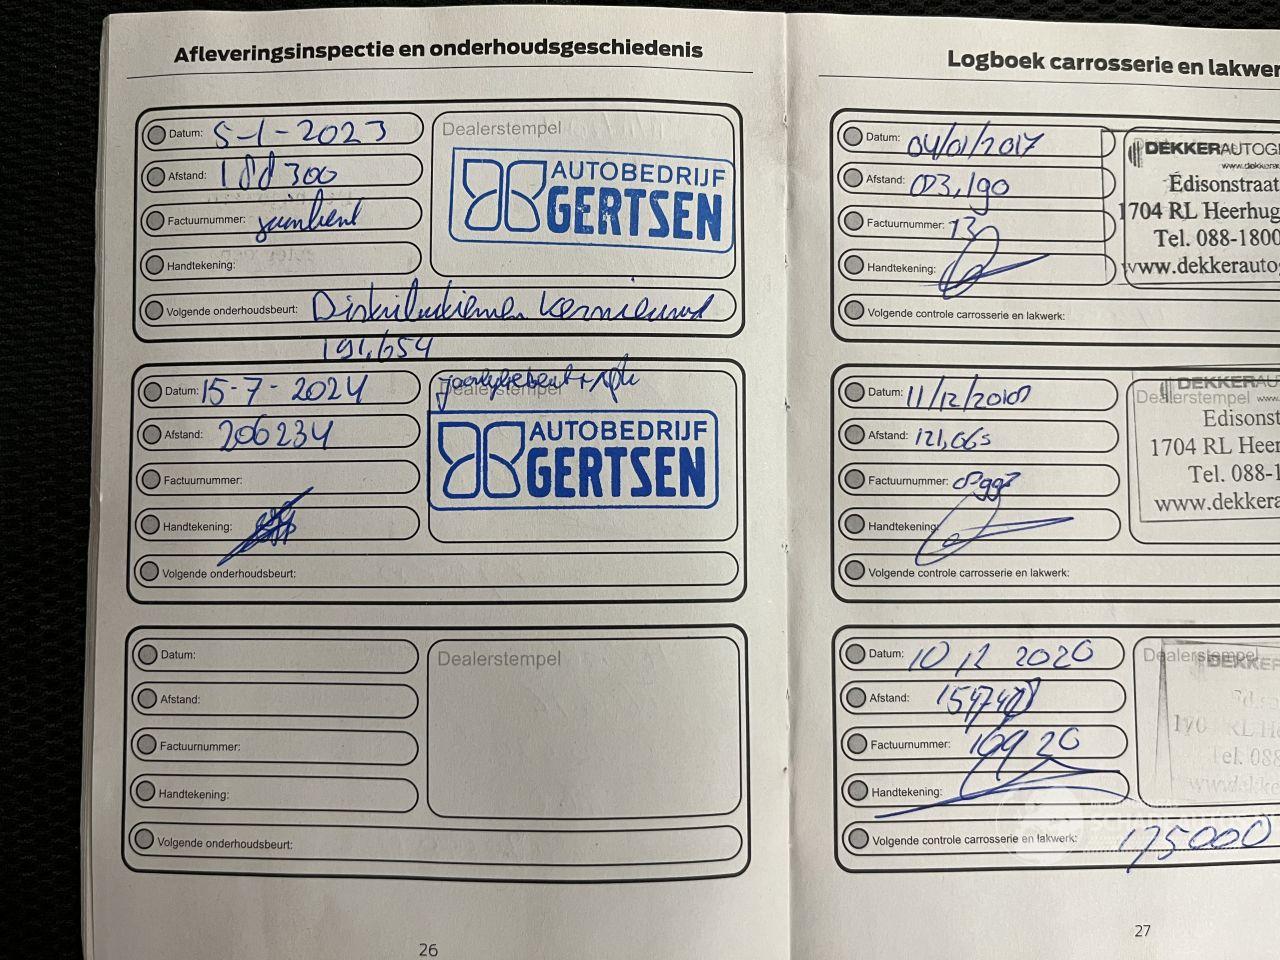 Afleveringsinspectie en onderhoudsgeschiedenis
Datum: 5-1-2023
Afstand: 188300
Factuurnummer:
Handtekening:
Volgende onderhoudsbeurt: Distributieriem vernieuwd
191,654
Dealerstempel
AUTOBEDRIJF
GERTSEN
Datum: 15-7-2024
Afstand: 206234
Factuurnummer:
Handtekening:
Volgende onderhoudsbeurt:
Dealerstempel
AUTOBEDRIJF
GERTSEN
Datum:
Afstand:
Factuurnummer:
Handtekening:
Volgende onderhoudsbeurt:
Dealerstempel
26
Logboek carrosserie en lakwer
Datum: 04/01/2017
Afstand: 003,190
Factuurnummer: 13
Handtekening:
Volgende controle carrosserie en lakwerk:
DEKKERAUTOG
Edisonstraat
1704 RL Heerhug
Tel. 088-1800
www.dekkerauto
Datum: 11/12/
Afstand: 121,065
Factuurnummer:
Handtekening:
Volgende controle carrosserie en lakwerk:
DEKKERAU
Dealerstempel www.
Edisonst
1704 RL Heer
Tel. 088-1
www.dekkera
Datum: 10 12 2020
Afstand:
Factuurnummer: 10920
Handtekening:
Volgende controle carrosserie en lakwerk: 175000
Dealerstempel
DEKKER
27